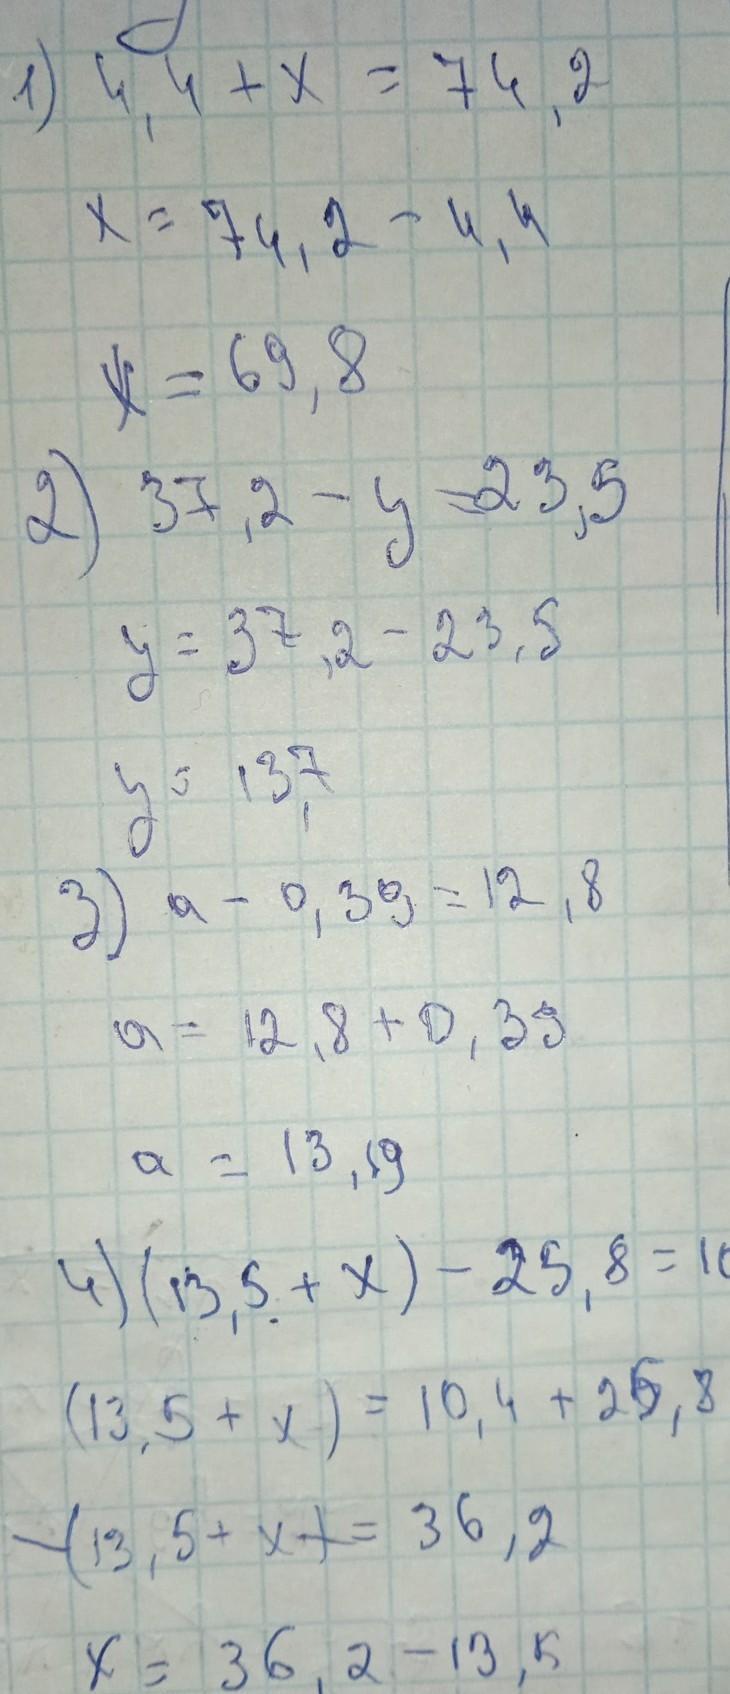 1) 4,4 + x = 74,2
x = 74,2 - 4,4
x = 69,8
2) 37,2 - y = 23,5
y = 37,2 - 23,5
y = 13,7
3) a - 0,39 = 12,8
a = 12,8 + 0,39
a = 13,19
4) (13,5 + x) - 25,8 = 10
(13,5 + x) = 10,4 + 25,8
(13,5 + x) = 36,2
x = 36,2 - 13,5